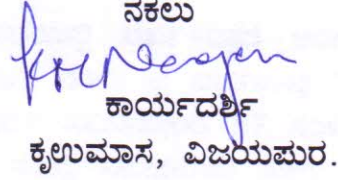 ನಕಲು
ಕಾರ್ಯದರ್ಶಿ
ಕೃಉಮಾಸ, ವಿಜಯಪುರ.